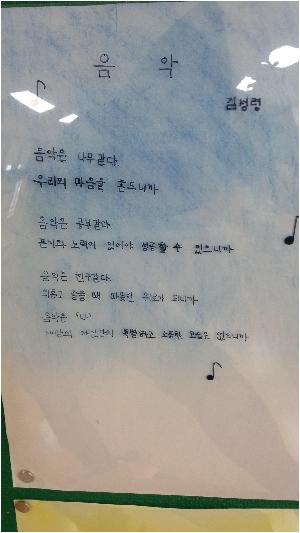 음악
김성령
음악은 나무같다.
우리의 마음을 흔드니까
음악은 공부같다.
끈기와 노력이 있어야 성공할 수 있으니까
음악은 친구같다.
외롭고 힘들 때 따뜻한 위로가 되니까
음악은 '나'다
특별하고 소중한 없으니까